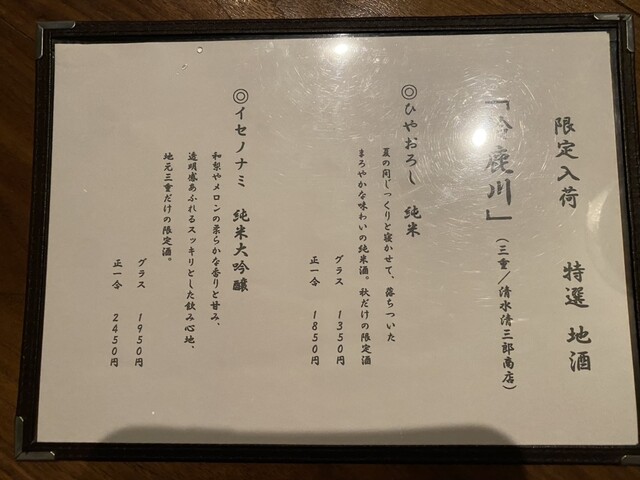 限定入荷 特選 地酒
鹿川」(三重/清水清三郎商店)
◎ひやおろし 純米
夏の間じっくりと寝かせて、落ちついた
まろやかな味わいの純米酒。秋だけの限定酒
グラス 1350円
正一合 1850円
◎イセノナミ 純米大吟醸
和梨やメロンの柔らかな香りと甘み、
透明感あふれるスッキリとした飲み心地、
地元三重だけの限定酒。
グラス 1950円
正一合 2450円